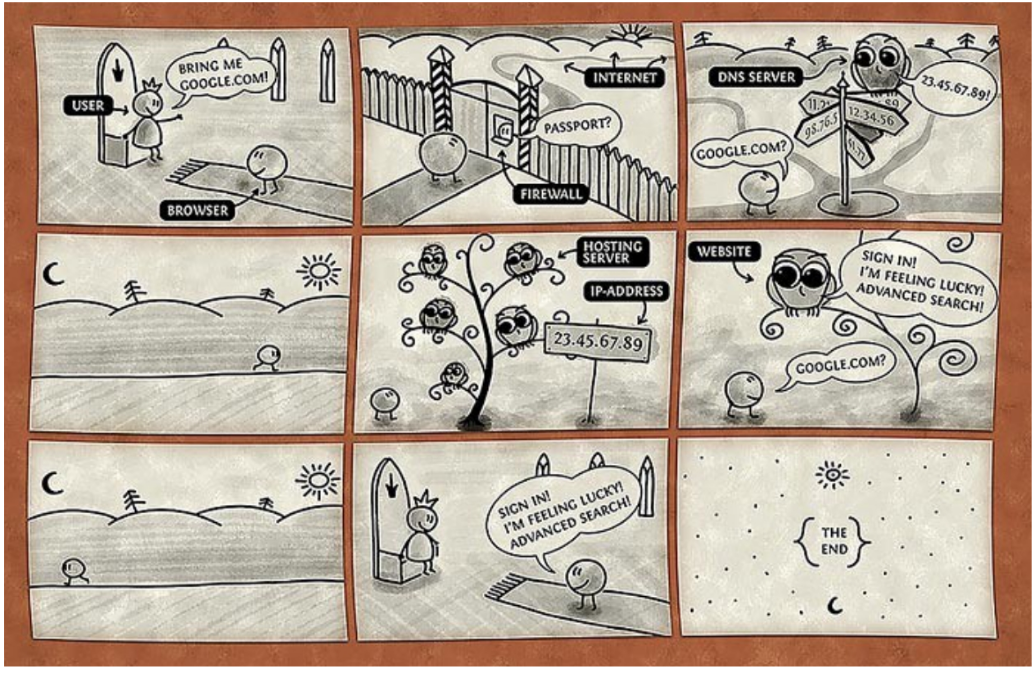 BRING ME
GOOGLE.COM!
USER
BROWSER
INTERNET
PASSPORT?
FIREWALL
DNS SERVER
23.45.67.89!
12.34.56
98.76.5
GOOGLE.COM?
HOSTING
SERVER
IP-ADDRESS
23.45.67.89
WEBSITE
SIGN IN!
I'M FEELING LUCKY!
ADVANCED SEARCH!
GOOGLE.COM?
SIGN IN!
I'M FEELING LUCKY!
ADVANCED SEARCH!
THE
END